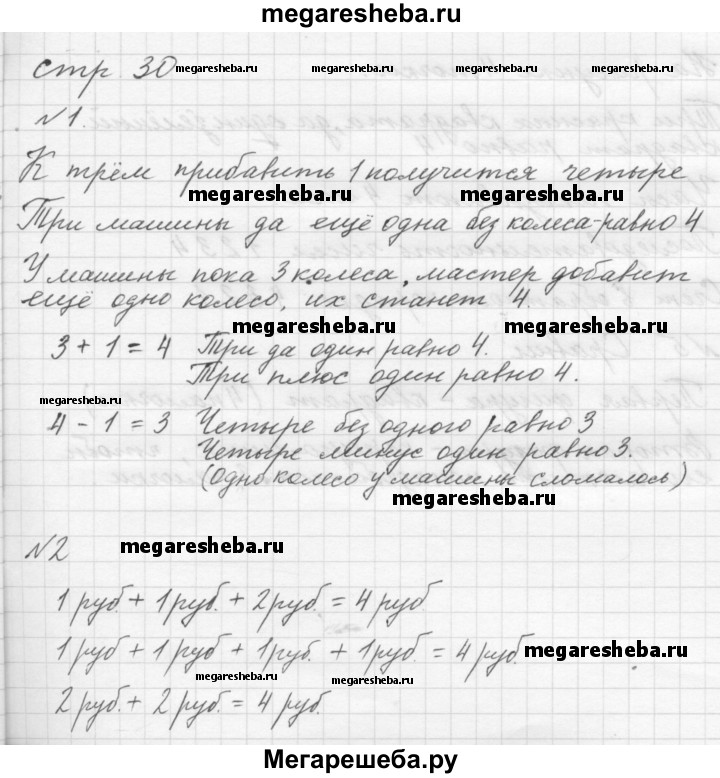 megaresheba.ru
стр 30 megaresheba.ru megaresheba.ru megaresheba.ru
№1.
К трём прибавить 1 получится четыре
megaresheba.ru megaresheba.ru
Три машины да ещё одна без колеса-равно 4
У машины пока 3 колеса, мастер добавит
ещё одно колесо, их станет 4.
megaresheba.ru megaresheba.ru
3 + 1 = 4 Три да один равно 4.
Три плюс один равно 4.
megaresheba.ru
4 - 1 = 3 Четыре без одного равно 3
Четыре минус один равно 3.
(Одно колесо у машины сломалось)
megaresheba.ru
№2 megaresheba.ru
1 руб. + 1 руб. + 2 руб. = 4 руб
1 руб + 1 руб + 1 руб. + 1 руб = 4 руб. megaresheba.ru
megaresheba.ru megaresheba.ru
2 руб. + 2 руб. = 4 руб.
Мегарешеба.ру